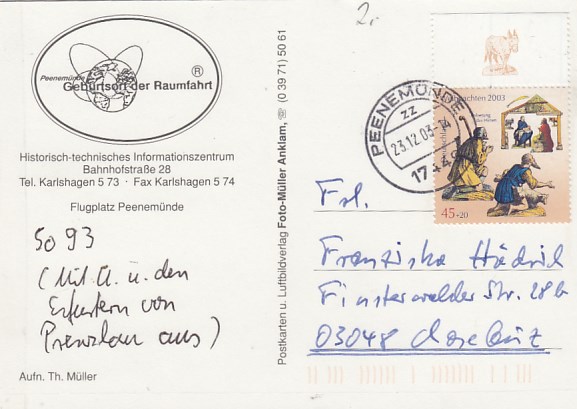 2.-
Peenemünde
Geburtsort der Raumfahrt
®
Historisch-technisches Informationszentrum
Bahnhofstraße 28
Tel. Karlshagen 5 73 · Fax Karlshagen 5 74
Flugplatz Peenemünde
So 93
(Mit A. u. den
Erfurtern von
Prenzlau aus)
Aufn. Th. Müller
Postkarten u. Luftbildverlag Foto-Müller Anklam, ☏ (0 39 71) 50 61
PEENEMÜNDE
zz
23.12.03
174
Weihnachten 2003
Deutschland
45+20
Frl.
Franziska Hädrich
Finsterwalder Str. 28b
03048